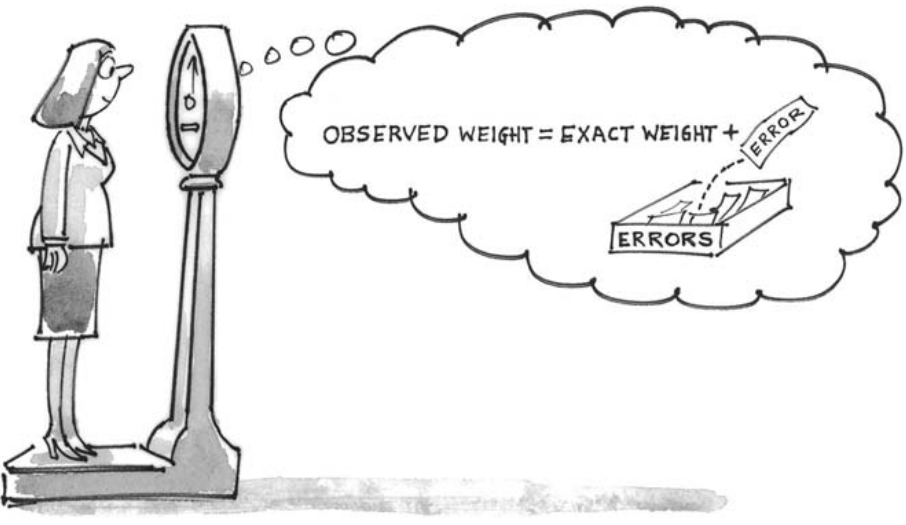 OBSERVED WEIGHT = EXACT WEIGHT +
ERROR
ERRORS